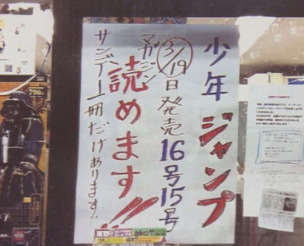 少年ジャンプ
3/19日発売16号15号
読めます!!
マガジン
サンデー1冊だけあります。